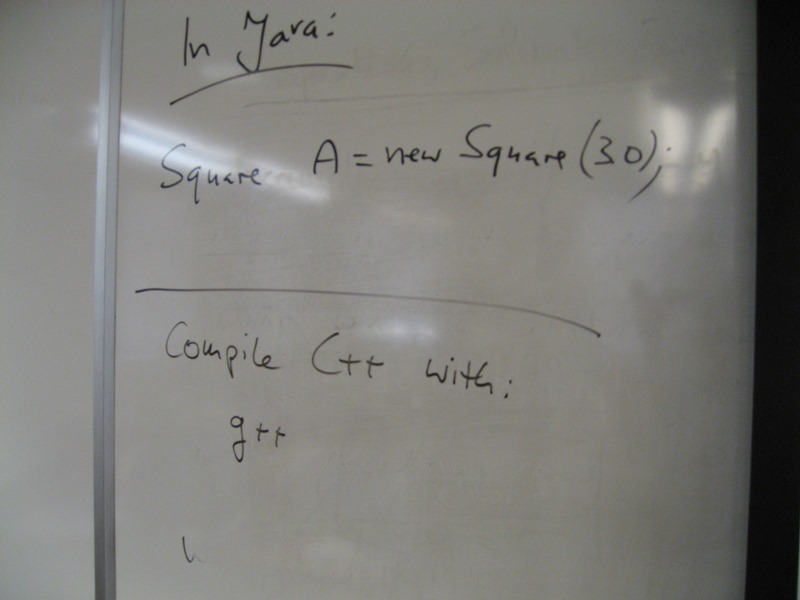 In Java:
Square A = new Square (30);
Compile C++ with:
g++